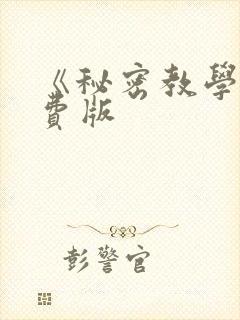 《秘密教學
費版
彭警官